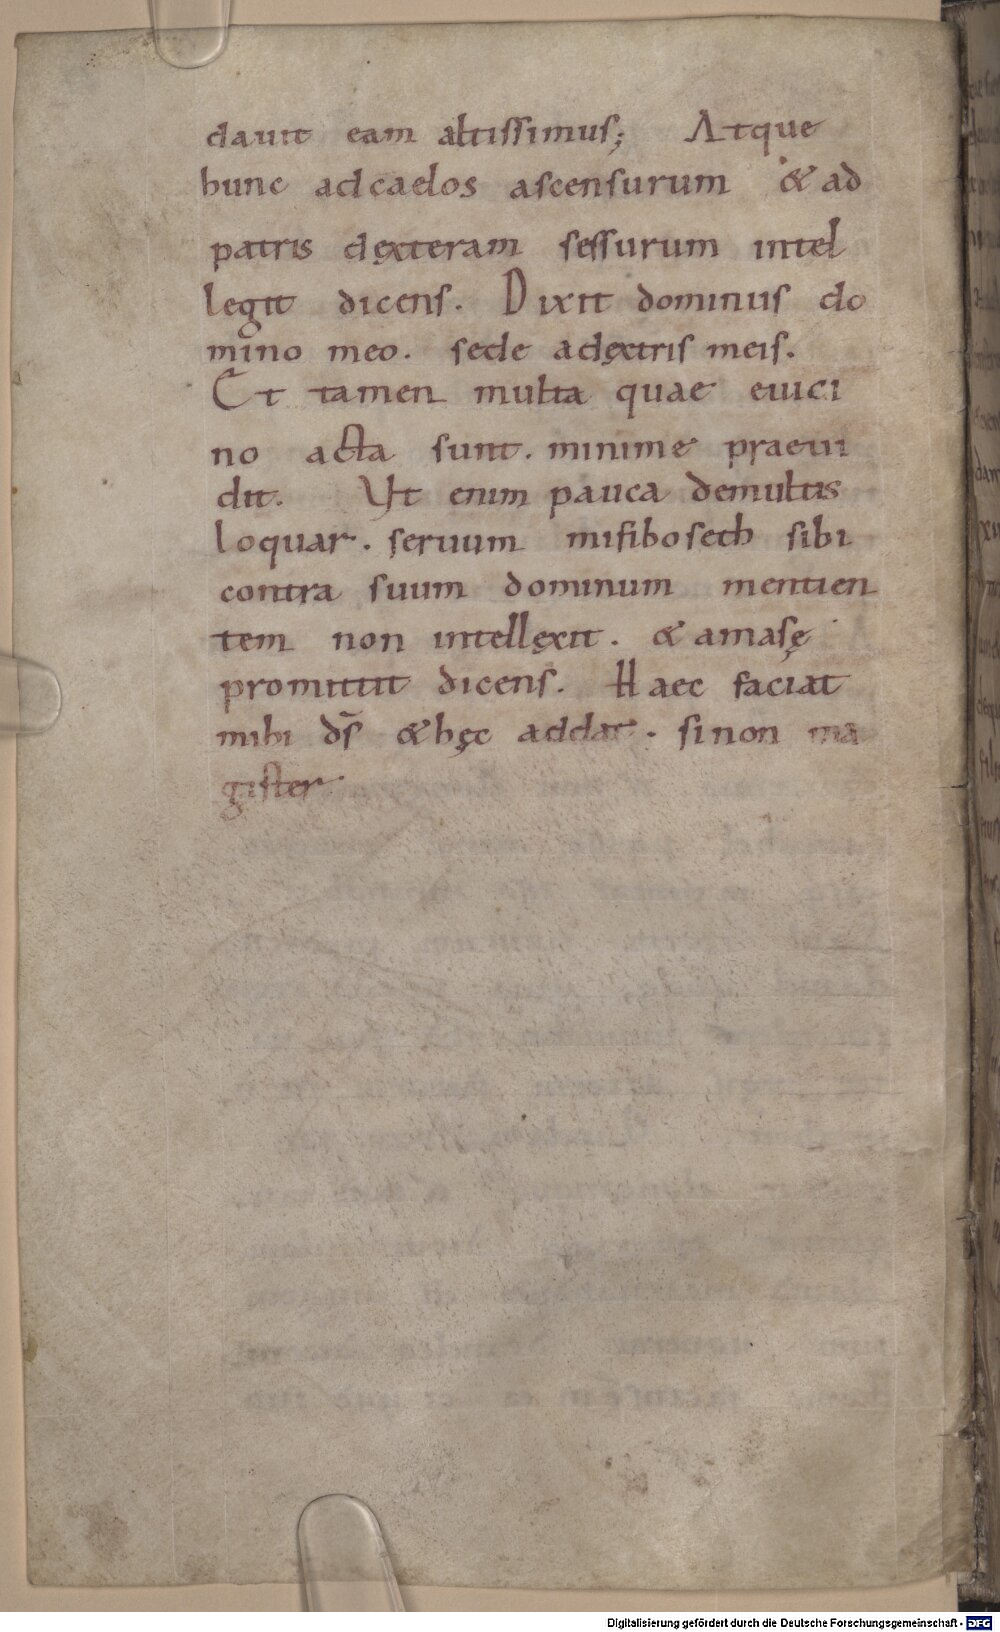 dauit eam altissimus; Atque
hunc ad caelos ascensurum & ad
patris dęxteram sessurum intel
legit dicens. Dixit dominus do
mino meo. sede adęxtris meis.
Et tamen multa quae euici
no acta sunt. minime praeui
dit. Ut enim pauca demultis
loquar. seruum misiboseth sibi
contra suum dominum mentien
tem non intellęxit. & amasę
promittit dicens. Haec faciat
mihi dс̄ &hęc addat. si non ma
gister
Digitalisierung gefördert durch die Deutsche Forschungsgemeinschaft - DFG